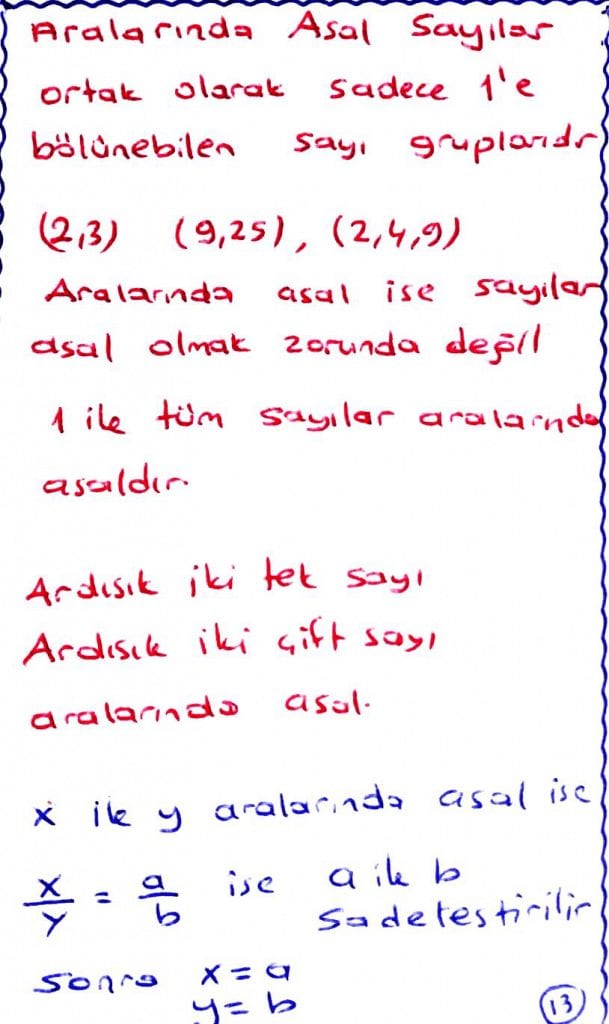 Aralarında Asal Sayılar
ortak olarak sadece 1'e
bölünebilen sayı gruplarıdır
(2,3) (9,25), (2,4,9)
Aralarında asal ise sayılar
asal olmak zorunda değil
1 ile tüm sayılar aralarında
asaldır
Ardısık iki tek sayı
Ardısık iki çift sayı
aralarında asal.
x ile y aralarında asal ise
x/y = a/b ise a ile b
sadelestirilir
sonra x = a
y = b
13